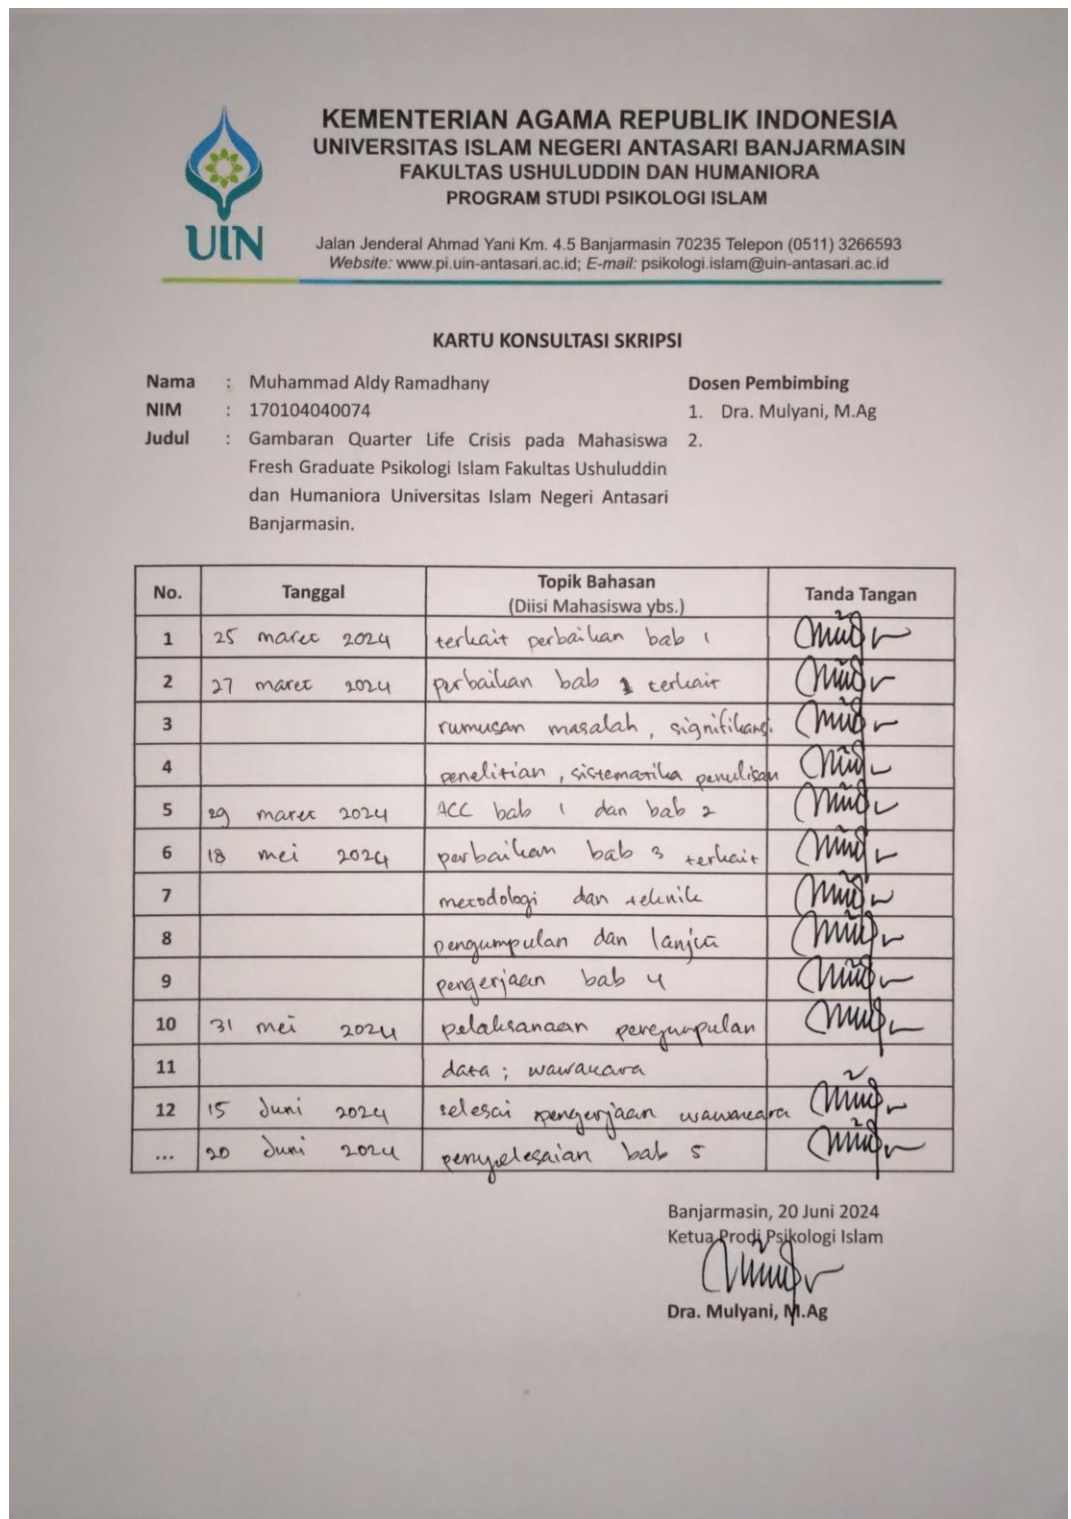 KEMENTERIAN AGAMA REPUBLIK INDONESIA
UNIVERSITAS ISLAM NEGERI ANTASARI BANJARMASIN
FAKULTAS USHULUDDIN DAN HUMANIORA
PROGRAM STUDI PSIKOLOGI ISLAM
UIN
Jalan Jenderal Ahmad Yani Km. 4.5 Banjarmasin 70235 Telepon (0511) 3266593
Website: www.pi.uin-antasari.ac.id; E-mail: psikologi.islam@uin-antasari.ac.id
KARTU KONSULTASI SKRIPSI
Nama : Muhammad Aldy Ramadhany Dosen Pembimbing
NIM : 170104040074 1. Dra. Mulyani, M.Ag
Judul : Gambaran Quarter Life Crisis pada Mahasiswa 2.
Fresh Graduate Psikologi Islam Fakultas Ushuluddin
dan Humaniora Universitas Islam Negeri Antasari
Banjarmasin.
No. Tanggal Topik Bahasan (Diisi Mahasiswa ybs.) Tanda Tangan
1 25 maret 2024 terkait perbaikan bab 1
2 27 maret 2024 perbaikan bab 1 terkait
3 rumusan masalah, signifikansi
4 penelitian, sistematika penulisan
5 29 maret 2024 ACC bab 1 dan bab 2
6 18 mei 2024 perbaikan bab 3 terkait
7 metodologi dan teknik
8 pengumpulan dan lanjut
9 pengerjaan bab 4
10 31 mei 2024 pelaksanaan pengumpulan
11 data; wawancara
12 15 Juni 2024 selesai pengerjaan wawancara
... 20 Juni 2024 penyelesaian bab 5
Banjarmasin, 20 Juni 2024
Ketua Prodi Psikologi Islam
Dra. Mulyani, M.Ag